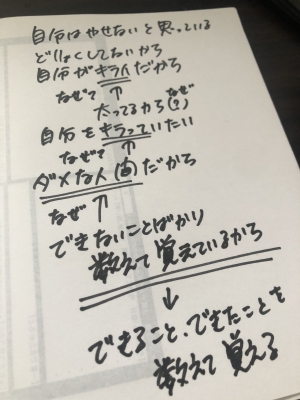 自分はやせないと思っている
どりょくしてないから
自分がキライだから
なぜ？ ↑ なぜ
太ってるから(?)
自分をキラっていたい
なぜ？ ↑
ダメな人(自)だから
なぜ ↑
できないことばかり
数えて覚えているから
↓
できること、できたことを
数えて覚える